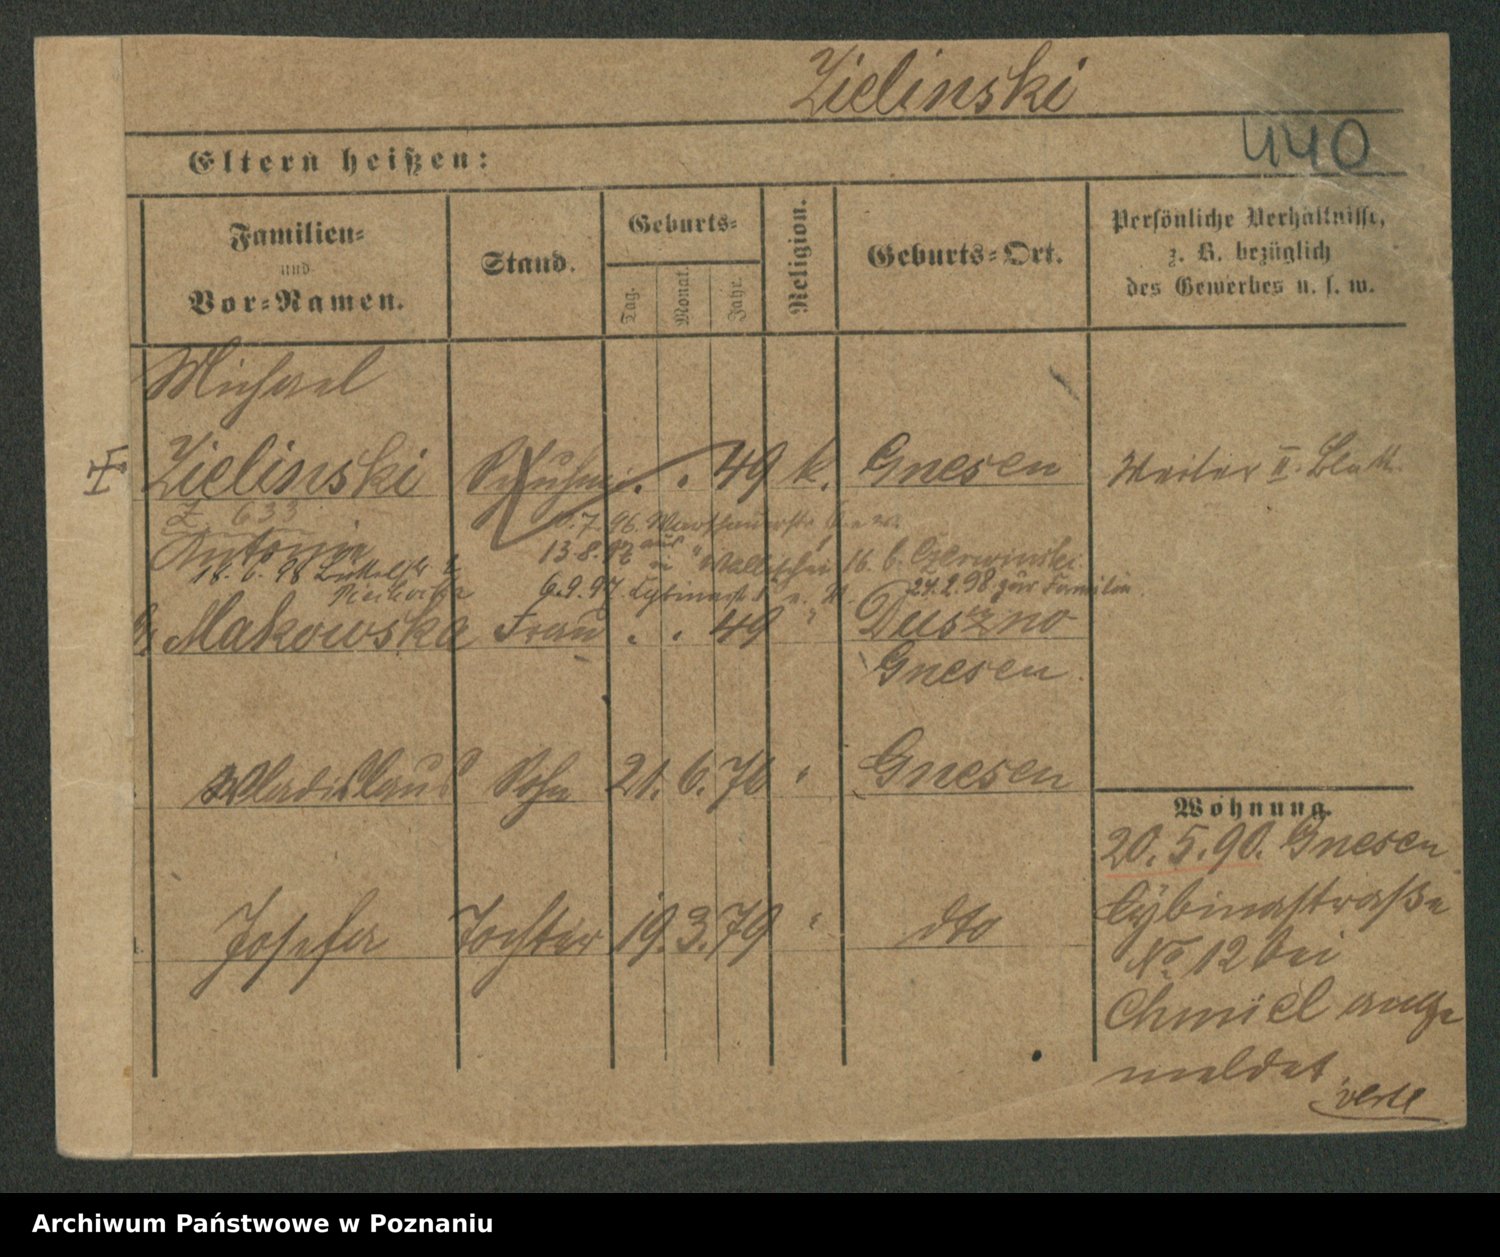 Zielinski
440
Eltern heißen:
Familien=
und
Vor=Namen.
Stand.
Geburts=
Tag.
Monat.
Jahr.
Religion.
Geburts=Ort.
Persönliche Verhältnisse,
z. B. bezüglich
des Gewerbes u. s. w.
Michael
Zielinski . . 49 k. Gnesen Weiter II. Blatt
Z 633
7. 96.
Antonie
13.8.
16. b. Czerwinski
18. 6. 98
6.9.97. 24.2.98 zur Familie
Makowska Frau . . 49 " Duszno
Gnesen.
Wladislaus Sohn 21. 6. 76 " Gnesen
Josefa Tochter 19. 3. 79 " dto
Wohnung.
20. 5. 90. Gnesen
Cybinastraße
No 12 bei
Chmiel ange
meldet.
verte
Archiwum Państwowe w Poznaniu